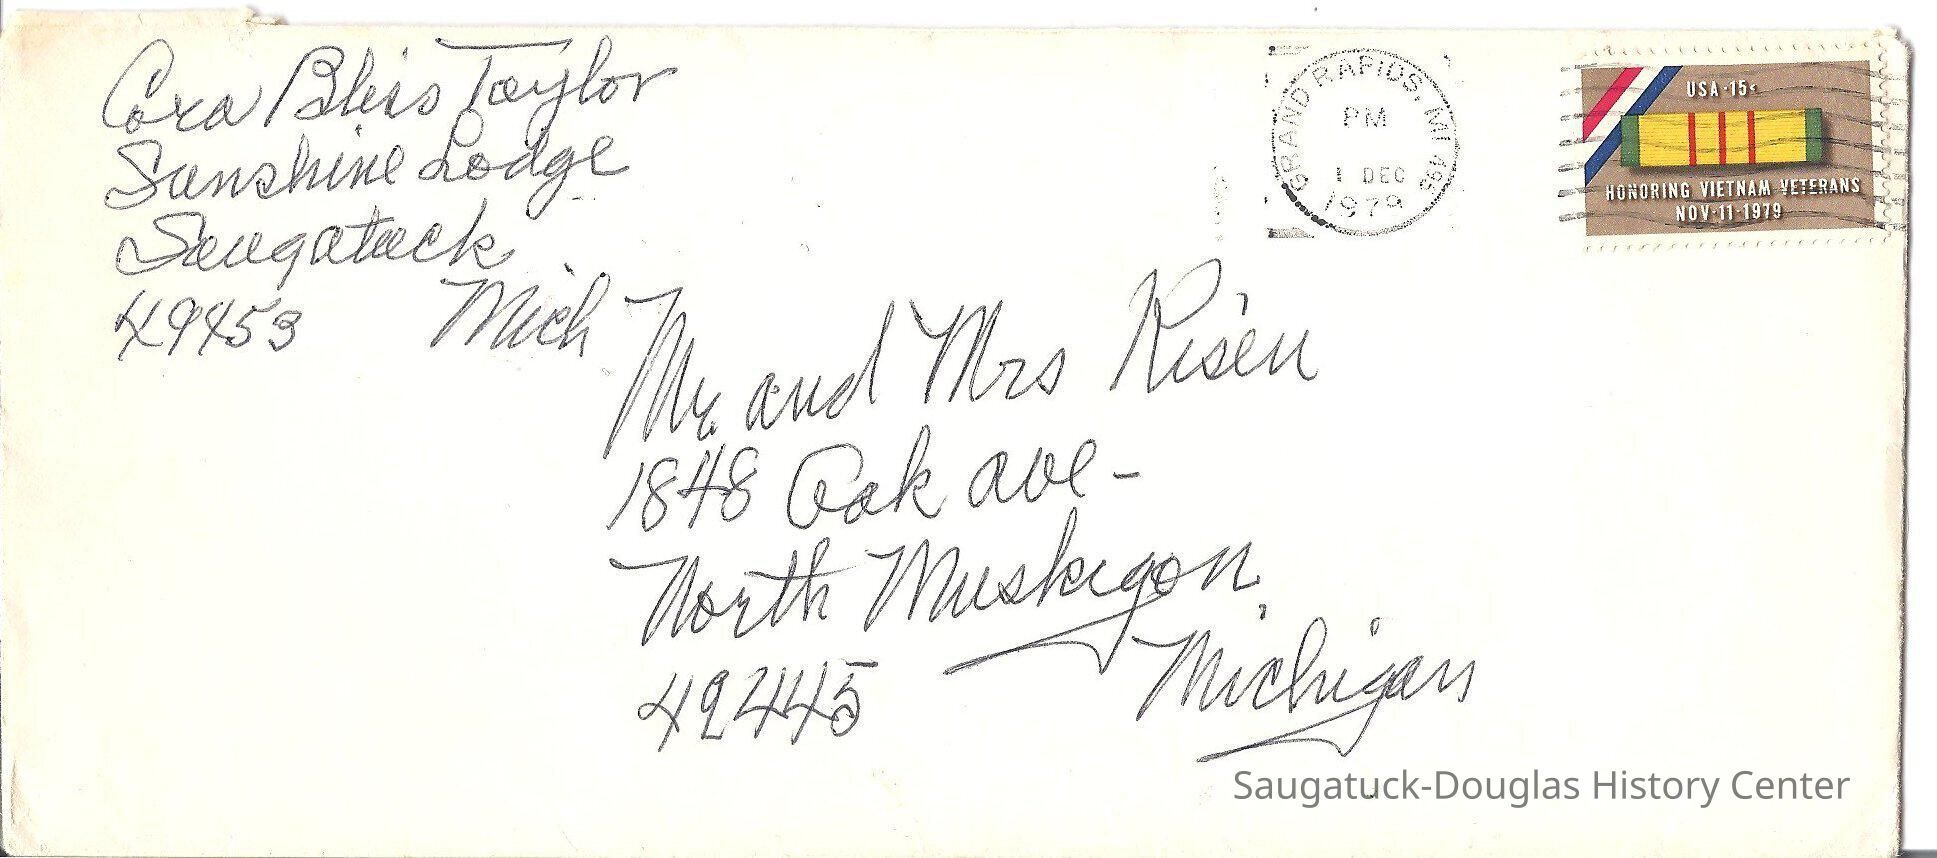 Cora Bliss Taylor
Sunshine Lodge
Saugatuck
49453 Mich
GRAND RAPIDS, MI 495
PM
1 DEC
1979
USA·15c
HONORING VIETNAM VETERANS
NOV·11·1979
Mr. and Mrs Risen
1848 Oak ave-
North Muskegon,
Michigan
49445
Saugatuck-Douglas History Center